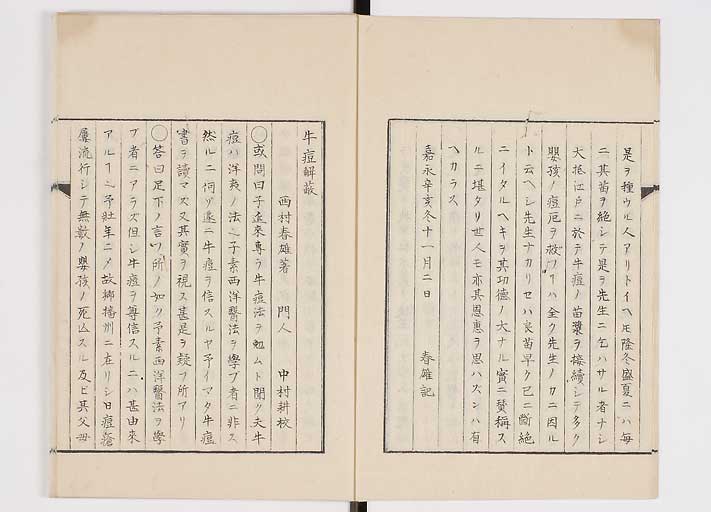 是ヲ種ウル人アリトイヘモ隆冬盛夏ニハ毎
ニ其苗ヲ絶シテ是ヲ先生ニ乞ハサル者ナシ
大抵江戸ニ於テ牛痘ノ苗漿ヲ接続シテ多ク
嬰孩ノ痘厄ヲ救フヿハ全ク先生ノ力ニ因ル
ト云ヘシ先生ナカリセハ良苗早ク已ニ断絶
ニイタルヘキヲ其功徳ノ大ナル實ニ賛稱ス
ルニ堪タリ世人モ亦其恩恵ヲ思ハズンハ有
ヘカラス
嘉永辛亥冬十一月二日　春雄記
牛痘解蔽
西村春雄著　門人　中村耕校
○或問曰子近來専ラ牛痘法ヲ勉ムト聞ク夫牛
痘ハ洋夷ノ法也子素西洋醫法ヲ學フ者ニ非ス
然ルニ何ゾ遂ニ牛痘ヲ信スルヤ予イマタ牛痘
書ヲ讀マズ又其實ヲ視ス甚是ヲ疑フ所アリ
○答曰足下ノ言フ所ノ如ク予素西洋醫法ヲ學
ブ者ニアラズ但シ牛痘ヲ尊信スルニハ甚由來
アルヿ也予壮年ニメ故郷播州ニ在リシ日痘瘡
屡流行シテ無數ノ嬰孩ノ死亾スル及ビ其父母